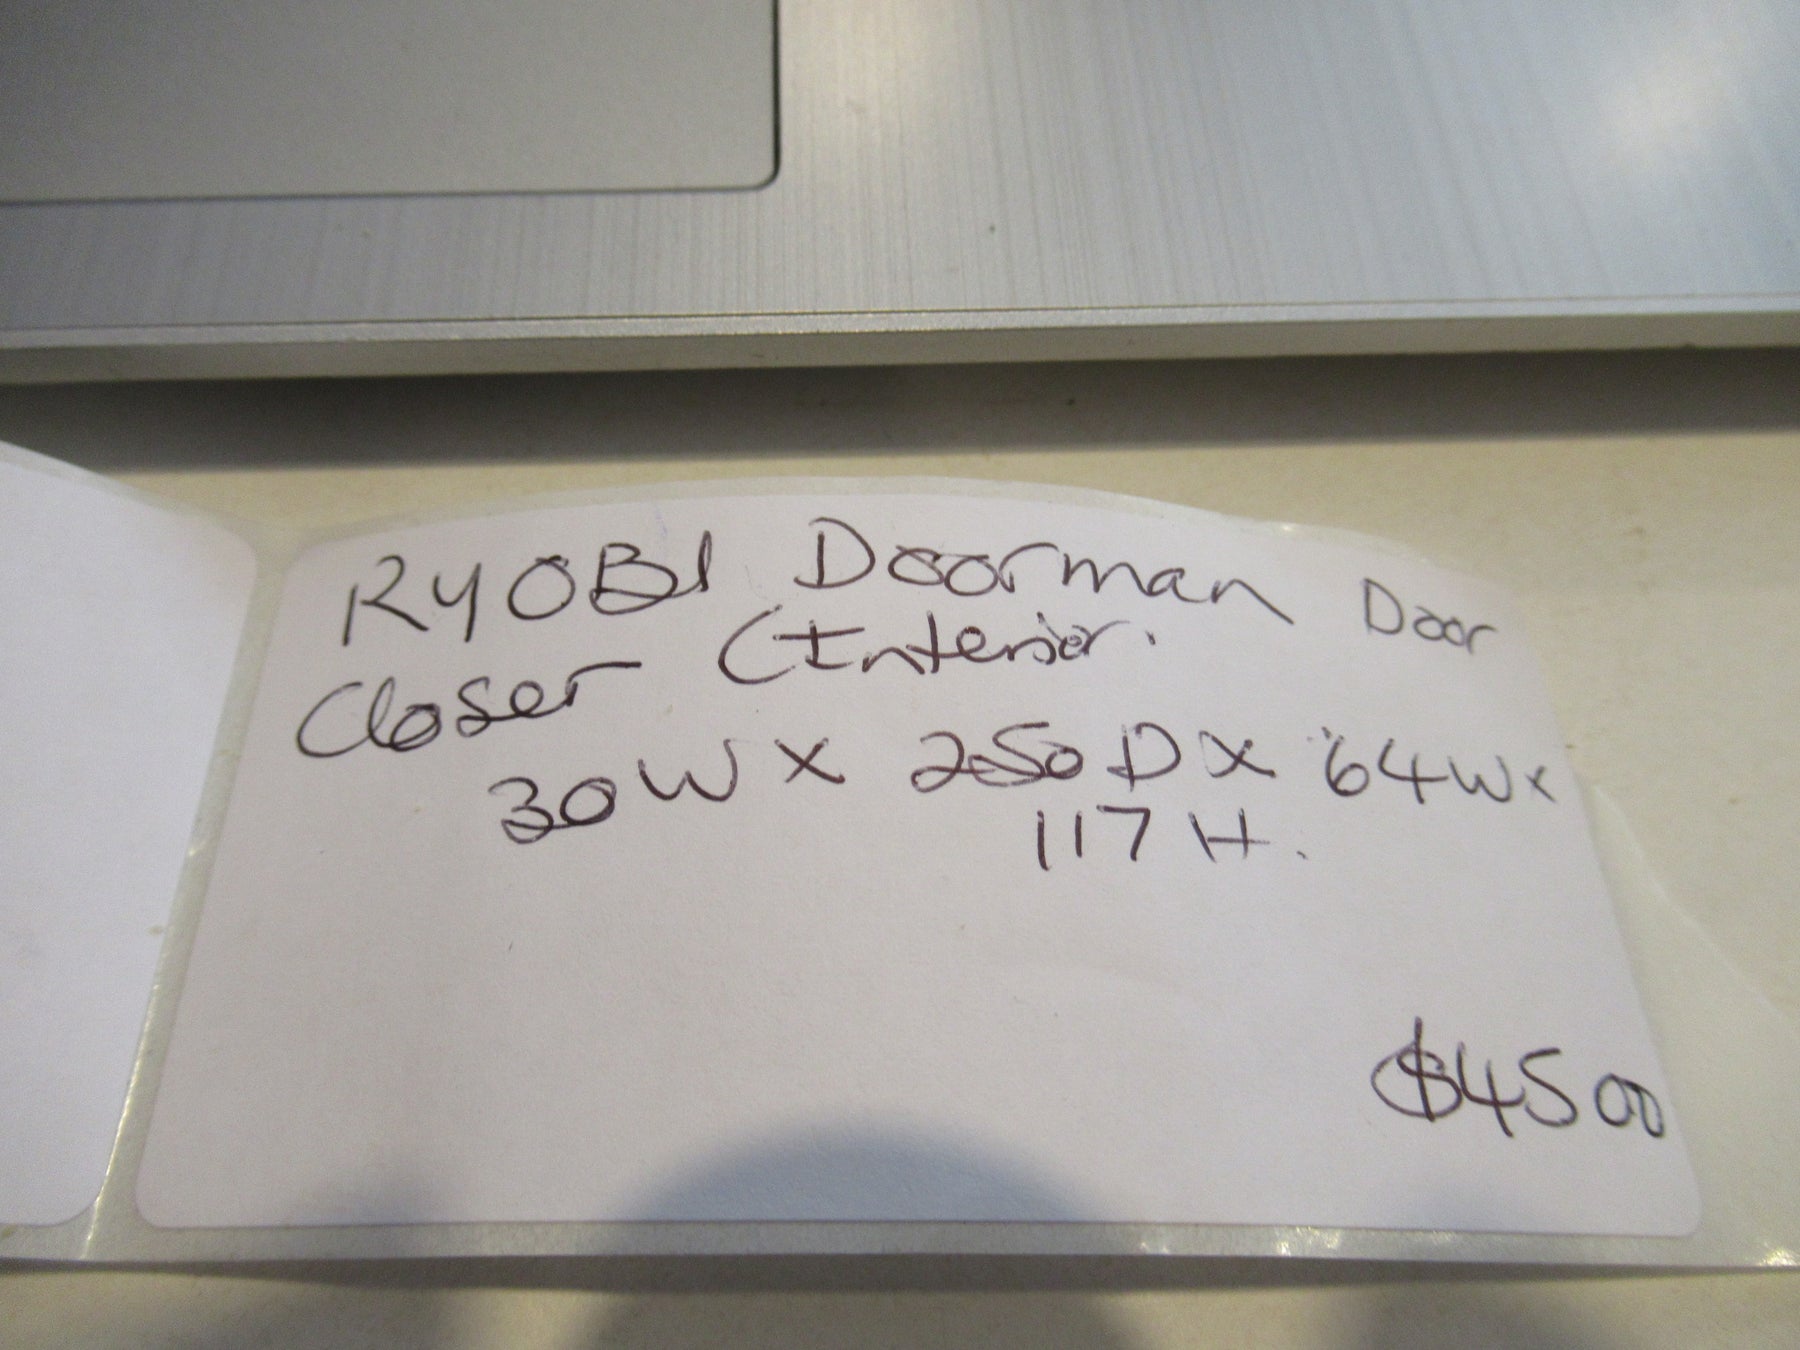 RYOBI Doorman Door
Closer (Interior.
30W x 250D x 64W x
117 H.
$4500